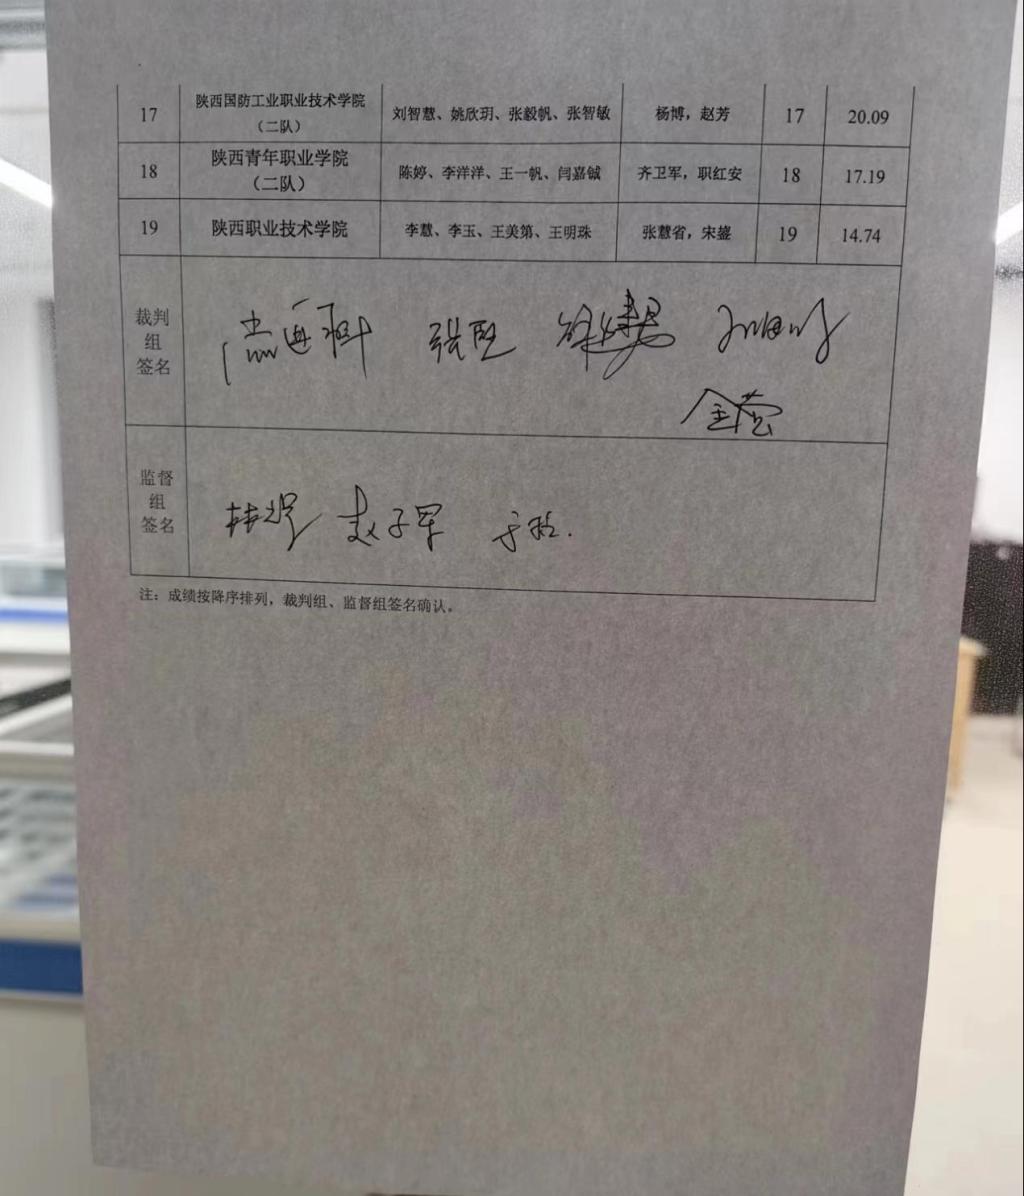 17 陕西国防工业职业技术学院 刘智慧、姚欣玥、张毅帆、张智敏 杨博，赵芳 17 20.09
（二队）
18 陕西青年职业学院 陈婷、李洋洋、王一帆、闫嘉铖 齐卫军，职红安 18 17.19
（二队）
19 陕西职业技术学院 李慧、李玉、王美第、王明珠 张慧省，宋鋆 19 14.74
裁判
组
签名
监督
组
签名
赵子军
注：成绩按降序排列，裁判组、监督组签名确认。